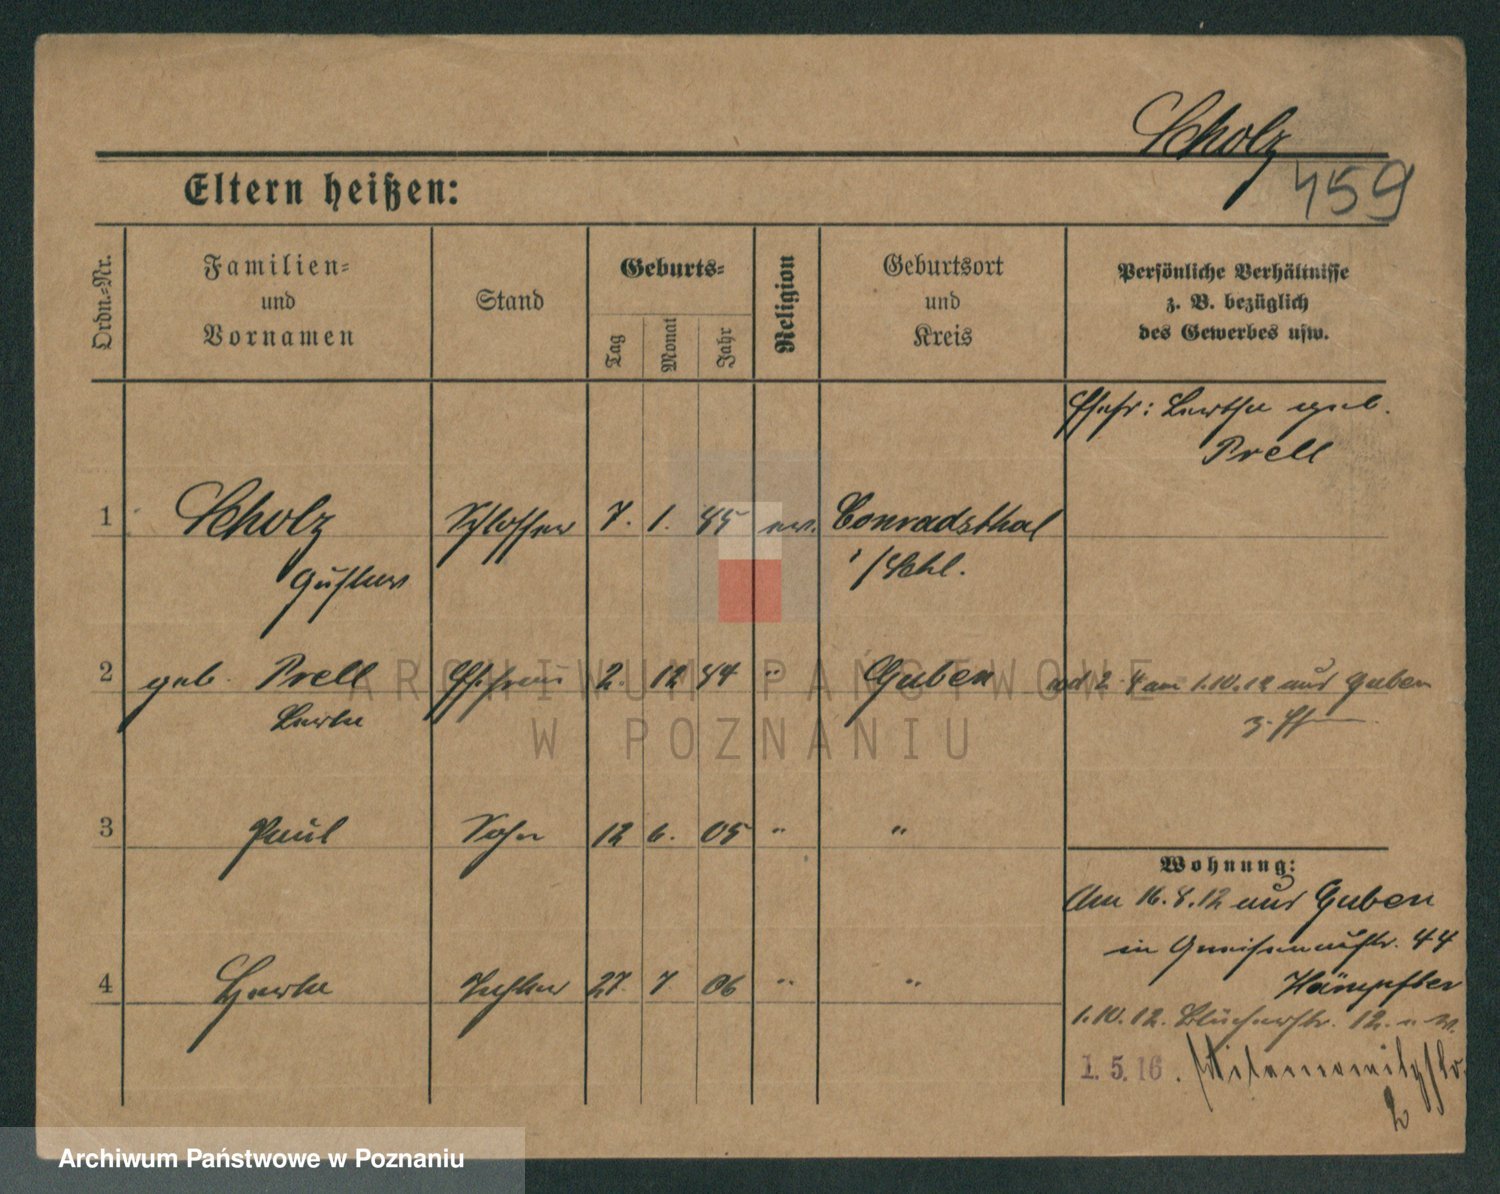 Scholz
459
Eltern heißen:
Ordn.-Nr.
Familien-
und
Vornamen
Stand
Geburts-
Tag
Monat
Jahr
Religion
Geburtsort
und
Kreis
Persönliche Verhältnisse
z. B. bezüglich
des Gewerbes usw.
Ehefr: Bertha geb.
Prell
1 Scholz Schlosser 7. 1. 85 ev. Conradsthal
Gustav i/Schl.
2 geb. Prell Ehefrau 2. 12 84 " Guben
Berta
2. 4 am 1.10.12 aus Guben
3 Paul Sohn 12 6. 05 " "
Wohnung:
Am 16.8.12 aus Guben
in Gneisenaustr. 44
4 Herta Tochter 27. 7 06 " "
1.10.12. Blücherstr. 12.
1.5.16.
2
ARCHIWUM PAŃSTWOWE
W POZNANIU
Archiwum Państwowe w Poznaniu